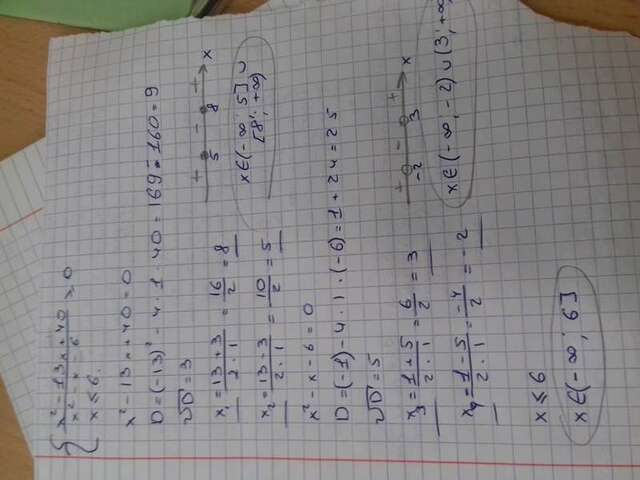 { (x² - 13x + 40) / (x² - x - 6) ≥ 0
x ≤ 6.
x² - 13x + 40 = 0
D = (-13)² - 4 · 1 · 40 = 169 - 160 = 9
√D = 3
x₁ = (13 + 3) / (2 · 1) = 16/2 = 8
+ - + x
5 8
x₂ = (13 - 3) / (2 · 1) = 10/2 = 5
x ∈ (-∞; 5] ∪
[8; +∞)
x² - x - 6 = 0
D = (-1) - 4 · 1 · (-6) = 1 + 24 = 25
√D = 5
x₃ = (1 + 5) / (2 · 1) = 6/2 = 3
+ - + x
-2 3
x₄ = (1 - 5) / (2 · 1) = -4/2 = -2
x ∈ (-∞; -2) ∪ (3; +∞
x ≤ 6
x ∈ (-∞; 6]